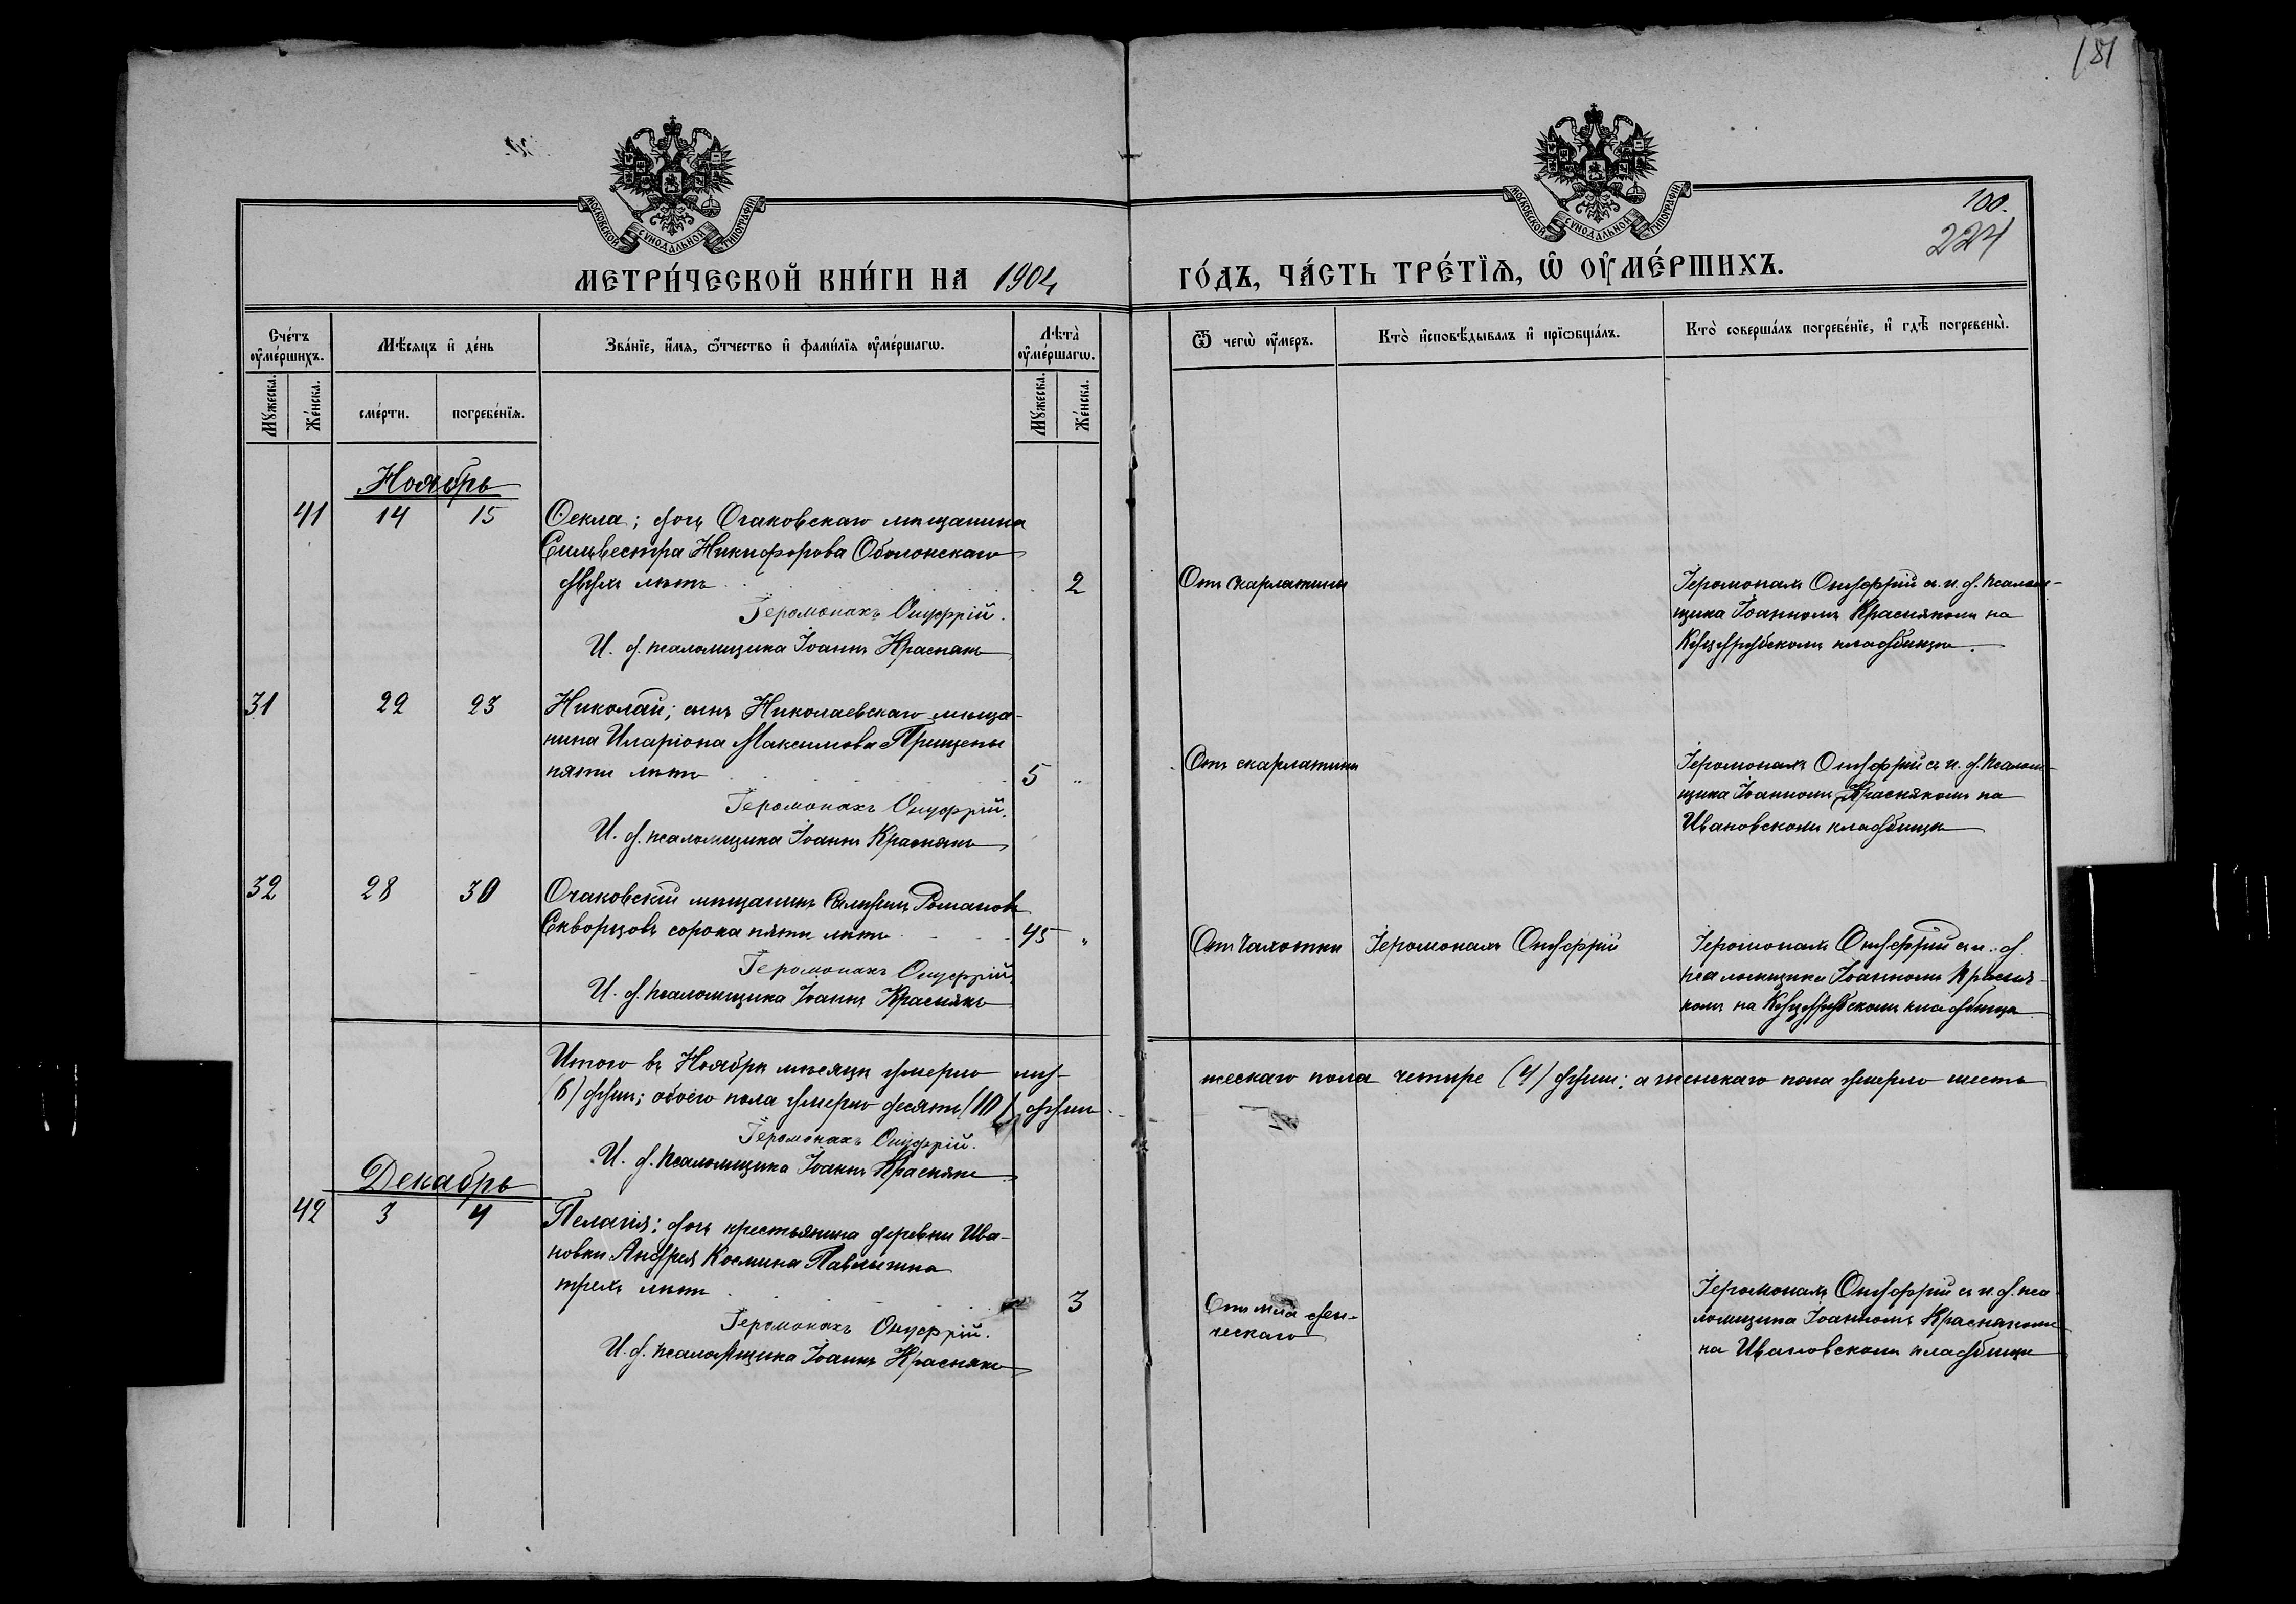 181
МОСКОВСКОЙ СѴНОДАЛЬНОЙ ТИПОГРАФІИ
МОСКОВСКОЙ СѴНОДАЛЬНОЙ ТИПОГРАФІИ
100.
224
МЕТРИ́ЧЕСКОЙ КНИ́ГИ НА 1904 ГО́ДЪ, ЧА́СТЬ ТРЕ́ТІѦ, Ѡ҆ ОУ҆МЕ́РШИХЪ.
Сче́тъ оу҆ме́ршихъ.
Мꙋ́жеска.
Же́нска.
Мѣ́сяцъ и҆ де́нь
сме́рти.
погребе́нїѧ.
Зва́нїе, и҆́мѧ, ѻ҆́тчество и҆ фами́лїѧ оу҆ме́ршагѡ.
Лѣта̀ оу҆ме́ршагѡ.
Мꙋ́жеска.
Же́нска.
Ѿ чегѡ̀ оу҆́меръ.
Кто̀ и҆сповѣ́дывалъ и҆ прїѡбща́лъ.
Кто̀ соверша́лъ погребе́нїе, и҆ гдѣ̀ погребены̀.
Ноябрь
41 14 15 Ѳекла; дочь Очаковскаго мѣщанина
Сильвестра Никифорова Оболонскаго
двухъ лѣтъ 2
Іеромонахъ Онуфрій.
И. д. псаломщика Іоаннъ Краснякъ
Отъ скарлатины
Іеромонахъ Онуфрій съ и. д. псалом-
щика Іоанномъ Краснякомъ на
Куцурубскомъ кладбищѣ.
31 22 23 Николай; сынъ Николаевскаго мѣща-
нина Иларіона Максимова Прищепы
пяти лѣтъ 5 "
Іеромонахъ Онуфрій.
И. д. псаломщика Іоаннъ Краснякъ
Отъ скарлатины
Іеромонахъ Онуфрій съ и. д. псалом-
щика Іоанномъ Краснякомъ на
Ивановскомъ кладбищѣ
32 28 30 Очаковскій мѣщанинъ Романовъ
Скворцовъ сорока пяти лѣтъ 45 "
Іеромонахъ Онуфрій.
И. д. псаломщика Іоаннъ Краснякъ
Отъ чахотки
Іеромонахъ Онуфрій
Іеромонахъ Онуфрій съ и. д.
псаломщика Іоанномъ Красня-
комъ на Куцурубскомъ кладбищѣ
Итого въ Ноябрѣ мѣсяцѣ умерло му-
жескаго пола четыре (4) души; а женскаго пола умерло шесть
(6) душъ; обоего пола умерло десять (10) душъ
Іеромонахъ Онуфрій.
И. д. псаломщика Іоаннъ Краснякъ
Декабрь
42 3 4 Пелагія; дочь крестьянина деревни Ива-
новки Андрея Космина
трехъ лѣтъ 3
Іеромонахъ Онуфрій.
И. д. псаломщика Іоаннъ Краснякъ
Отъ младен-
ческаго
Іеромонахъ Онуфрій съ и. д. пса-
ломщика Іоанномъ Краснякомъ
на Ивановскомъ кладбищѣ